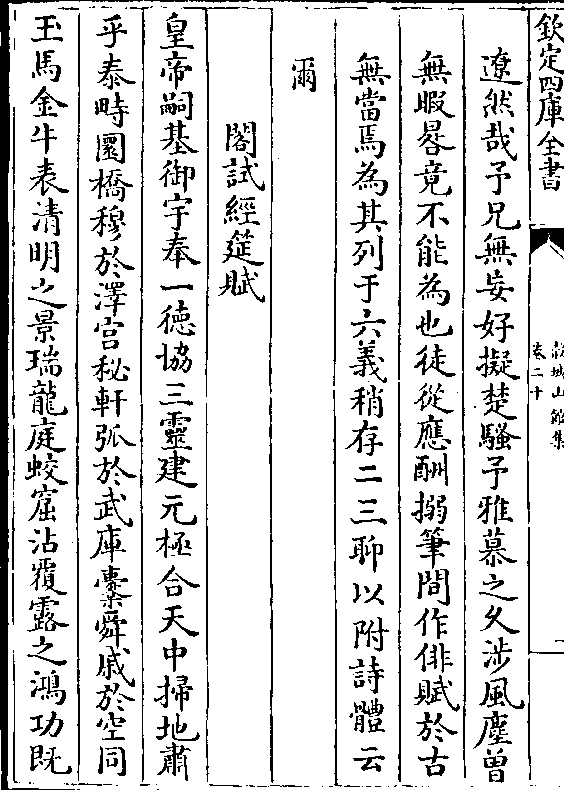 欽定四庫全書
穀城山館集
卷二十
一
遼然哉予兄無妄好擬楚騷予雅慕之久涉風塵曽
無暇晷竟不能為也徒從應酬搦筆間作俳賦於古
無當焉為其列于六義稍存二三聊以附詩體云
爾
閣試經筵賦
皇帝嗣基御宇奉一徳協三靈建元極合天中掃地肅
乎泰畤圜橋穆於澤宫秘軒弧於武庫櫜舜戚於空同
玉馬金牛表清明之景瑞龍庭蛟窟沾覆露之鴻功既